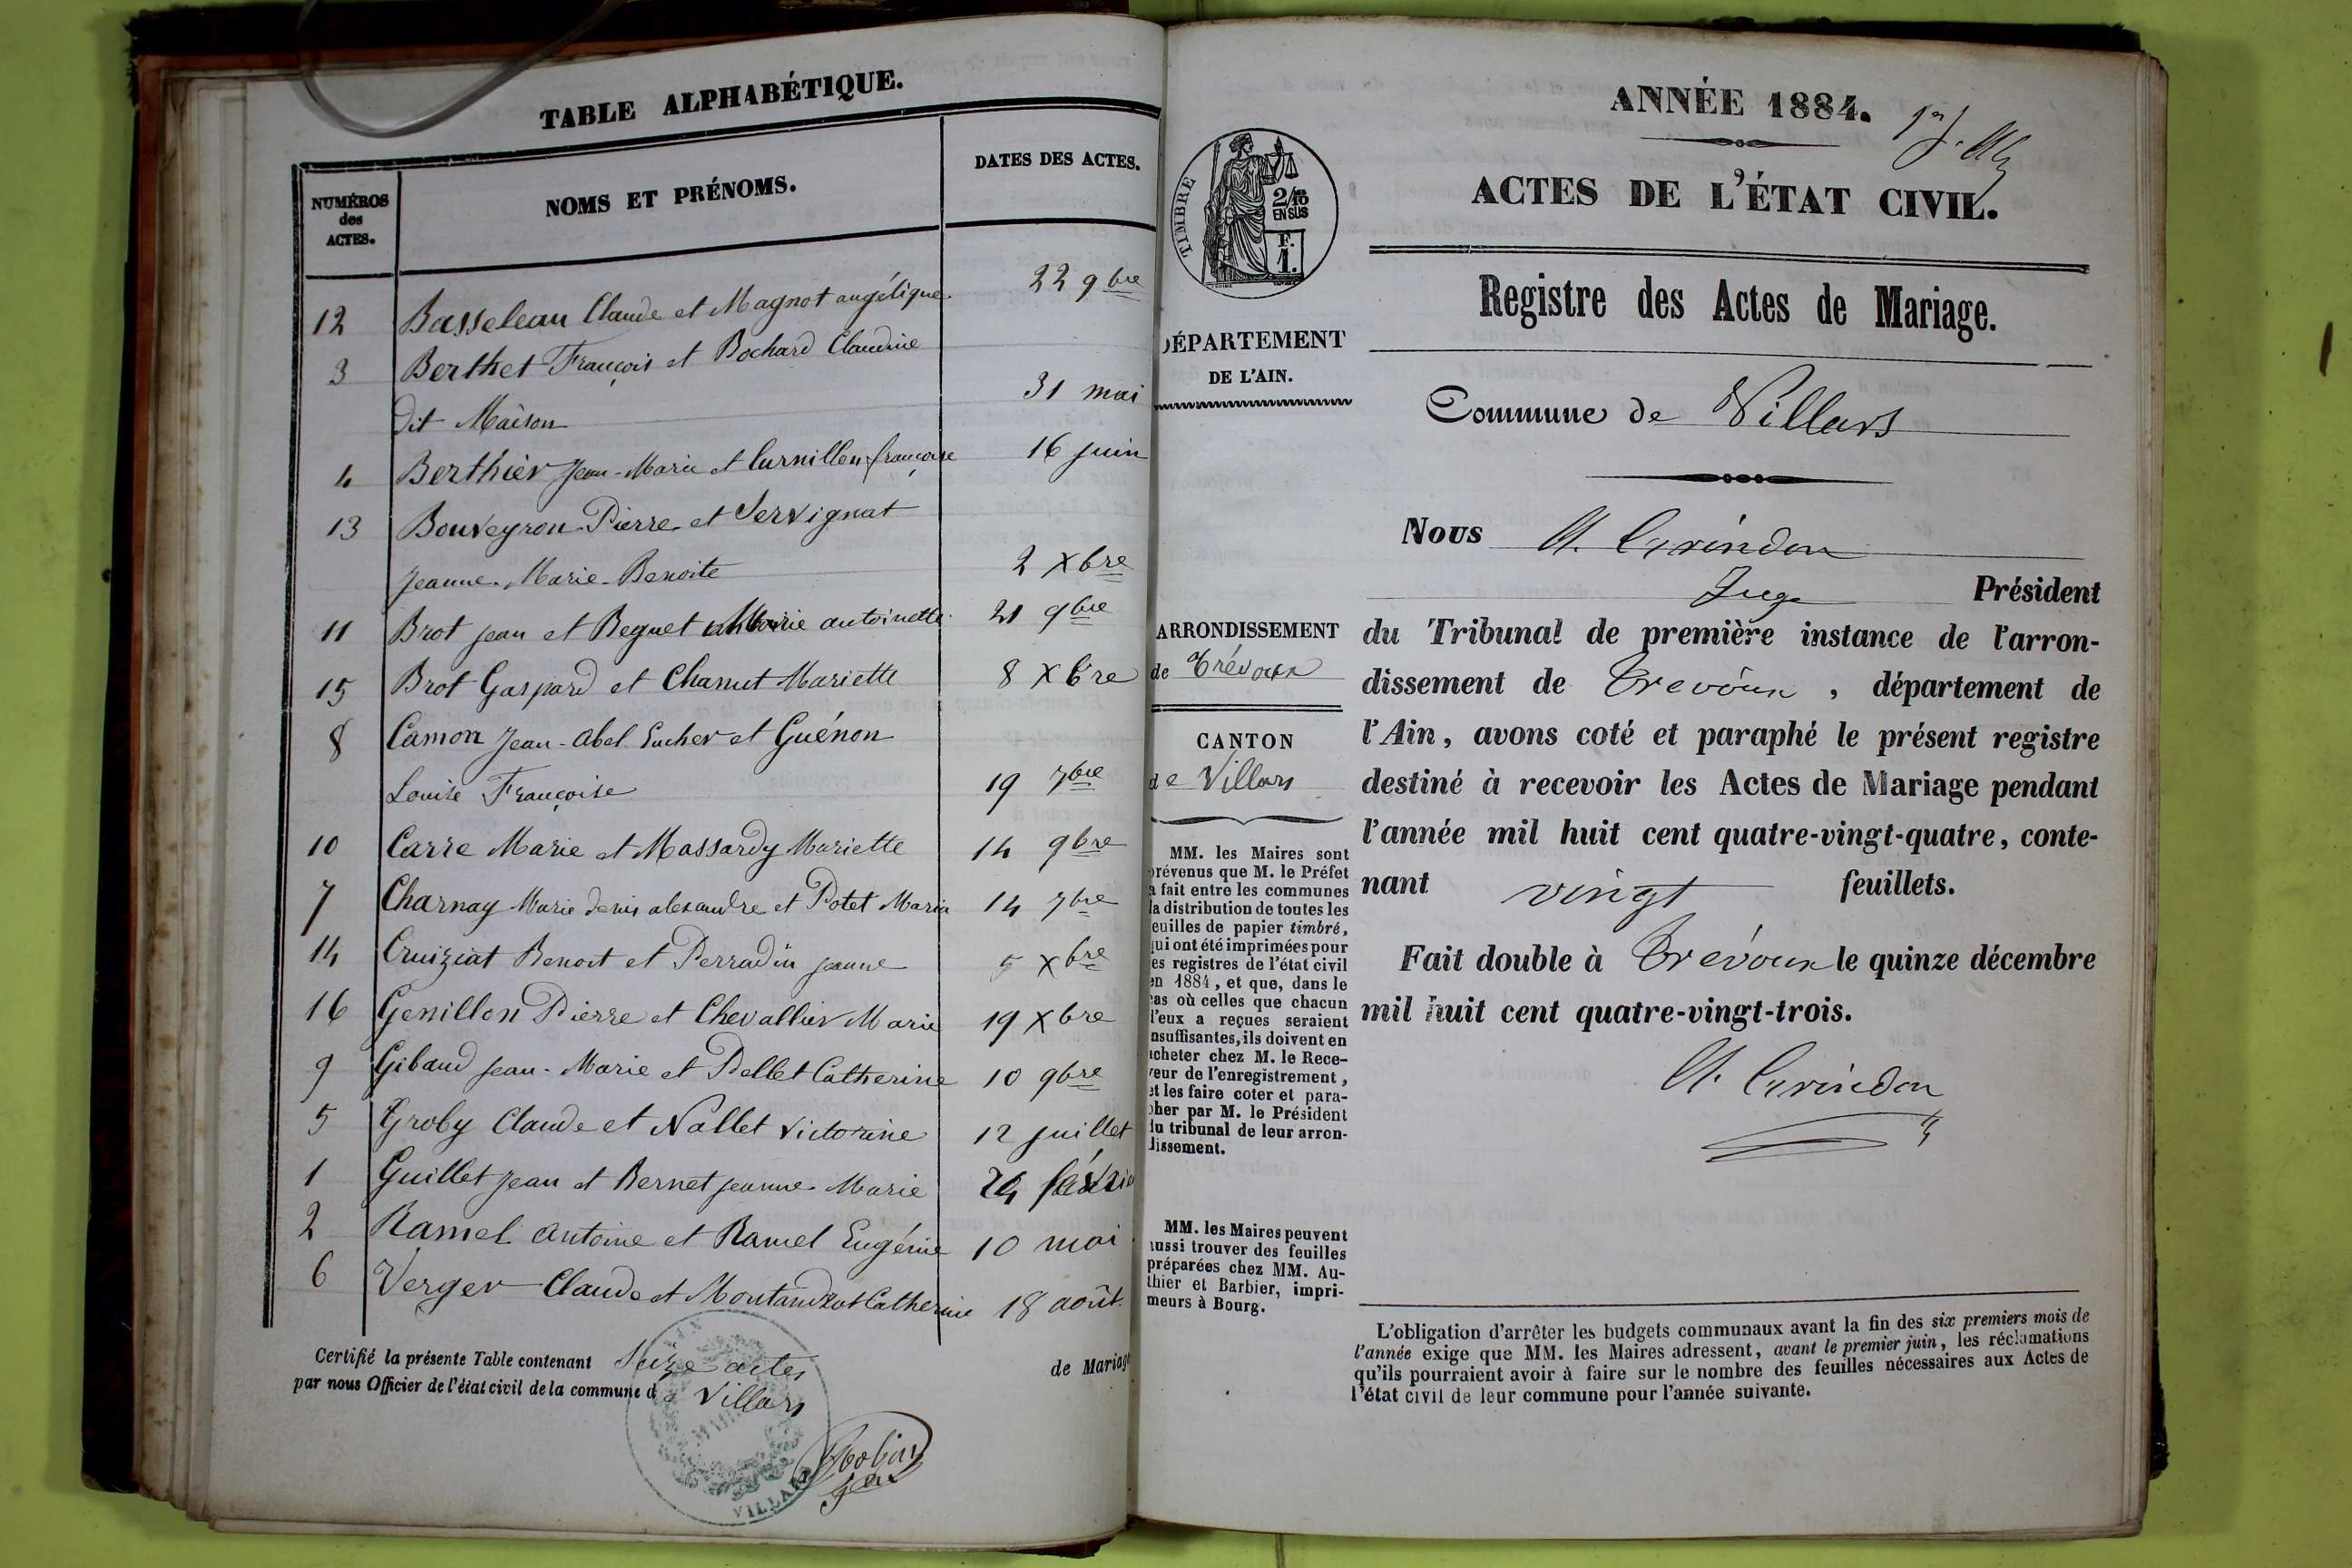 TABLE ALPHABÉTIQUE.
NUMÉROS
des
ACTES.
NOMS ET PRÉNOMS.
DATES DES ACTES.
12 Basselean Claude et Magnot angélique 22 9bre
3 Berthet François et Bochard Claudine
dit Maison 31 mai
4 Berthier Jean-Marie et Curnillon françoise 16 juin
13 Bouveyron Pierre et Servignat
Jeanne-Marie-Benoite 2 Xbre
11 Brot jean et Beguet Marie antoinette 21 9bre
15 Brot Gaspard et Chanut Mariette 8 Xbre
8 Camon Jean-Abel Eucher et Guénon
Louise Françoise 19 7bre
10 Carre Marie et Massardy Mariette 14 9bre
7 Charnay Marie denis alexandre et Potet Maria 14 7bre
14 Cruiziat Benoit et Perradin jeanne 5 Xbre
16 Genillon Pierre et Chevallier Marie 19 Xbre
9 Gibaud jean-Marie et Pellet Catherine 10 9bre
5 Groby Claude et Nallet Victorine 12 juillet
1 Guillet jean et Bernet jeanne Marie 24
2 Ramel antoine et Ramel Eugénie 10 mai
6 Verger Claude et Montandrot Catherine 18 août.
Certifié la présente Table contenant Seize actes de Mariage
par nous Officier de l'état civil de la commune de Villars
VILLARS
Robin
TIMBRE
2/10
EN SUS
F.
1.
DÉPARTEMENT
DE L'AIN.
ARRONDISSEMENT
de Trévoux
CANTON
de Villars
MM. les Maires sont
prévenus que M. le Préfet
a fait entre les communes
la distribution de toutes les
feuilles de papier timbré,
qui ont été imprimées pour
les registres de l'état civil
en 1884, et que, dans le
cas où celles que chacun
d'eux a reçues seraient
insuffisantes, ils doivent en
acheter chez M. le Rece-
veur de l'enregistrement,
et les faire coter et para-
pher par M. le Président
du tribunal de leur arron-
dissement.
MM. les Maires peuvent
aussi trouver des feuilles
préparées chez MM. Au-
thier et Barbier, impri-
meurs à Bourg.
ANNÉE 1884.
ACTES DE L'ÉTAT CIVIL.
Registre des Actes de Mariage.
Commune de Villars
Nous A. Grindon
Juge Président
du Tribunal de première instance de l'arron-
dissement de Trevoux, département de
l'Ain, avons coté et paraphé le présent registre
destiné à recevoir les Actes de Mariage pendant
l'année mil huit cent quatre-vingt-quatre, conte-
nant vingt feuillets.
Fait double à Trévoux le quinze décembre
mil huit cent quatre-vingt-trois.
A. Grindon
L'obligation d'arrêter les budgets communaux avant la fin des six premiers mois de
l'année exige que MM. les Maires adressent, avant le premier juin, les réclamations
qu'ils pourraient avoir à faire sur le nombre des feuilles nécessaires aux Actes de
l'état civil de leur commune pour l'année suivante.